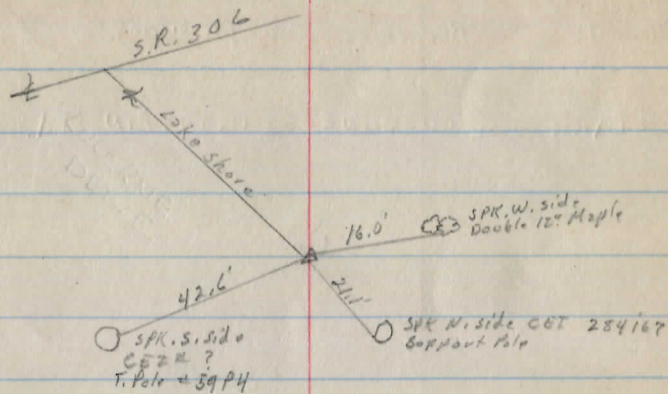 S.R. 306
Lake Shore
16.0'
SPK. W. side
Double 12" Maple
42.6'
21.1'
SPK. S. side
CEI # ?
T. Pole # 59P4
SPK N. side CEI 284167
Support Pole